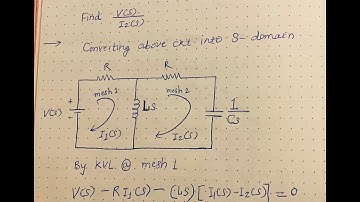 Find V(S)/I2(S)
→ Converting above ckt into S-domain
R R
mesh 1 mesh 2
V(S) + - LS 1/CS
I1(S) I2(S)
By KVL @ mesh 1
V(S) - R I1(S) - (LS) [I1(S) - I2(S)] = 0